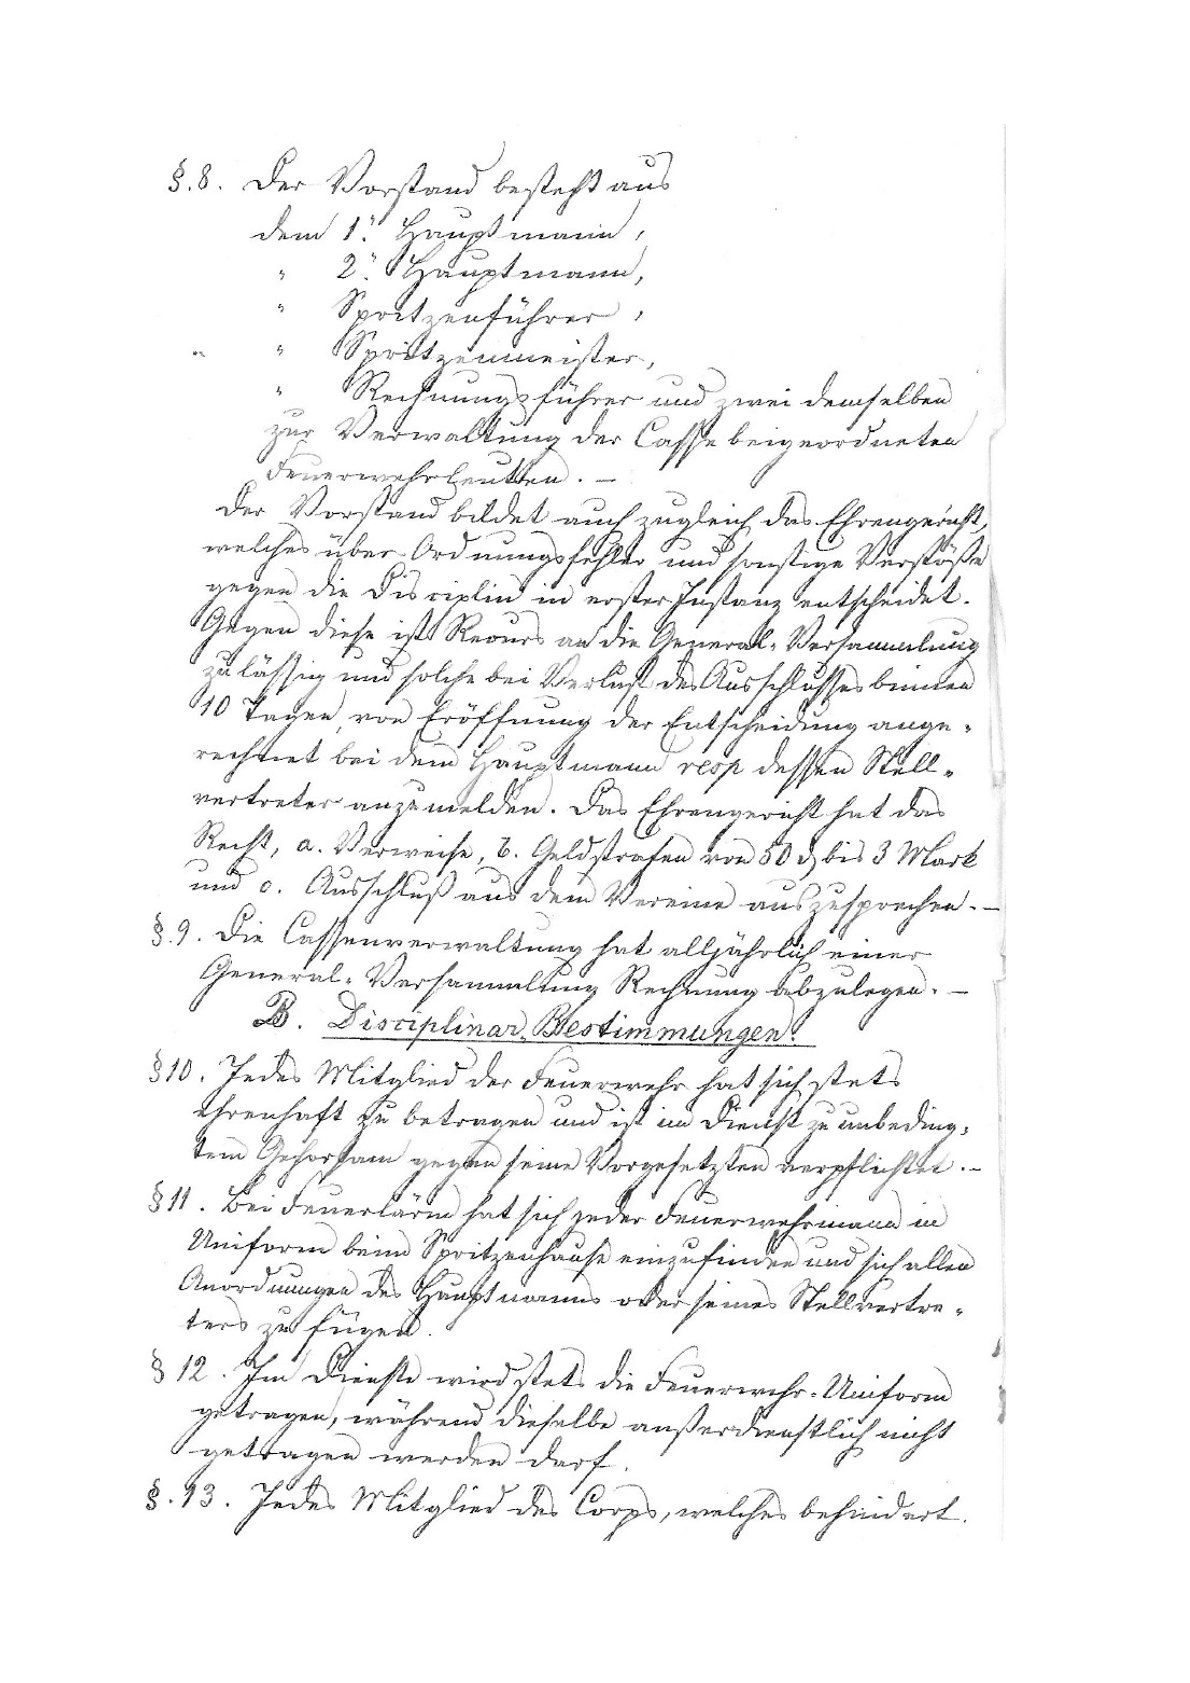 §. 8. Der Vorstand besteht aus
dem 1.ⁿ Hauptmann,
" 2.ⁿ Hauptmann,
" Spritzenführer,
" Spritzenmeister,
" Rechnungsführer und zwei demselben
zur Verwaltung der Casse beigeordneten
Feuerwehrleutten. —
Der Vorstand bildet auch zugleich das Ehrengericht,
welches über Ordnungsfehler und sonstige Verstöße
gegen die Disciplin in erster Instanz entscheidet.
Gegen diese ist Recurs an die General-Versammlung
zulässig und solche bei Verlust des Ausschlusses binnen
10 Tagen, von Eröffnung der Entscheidung ange-
rechnet bei dem Hauptmann resp dessen Stell-
vertreter anzumelden. Das Ehrengericht hat das
Recht, a. Verweise, b. Geldstrafen von 50 ₰ bis 3 Mark
und c. Ausschluß aus dem Vereine auszusprechen. —
§. 9. Die Cassenverwaltung hat alljährlich einer
General-Versammlung Rechnung abzulegen. —
B. Disciplinar-Bestimmungen.
§ 10. Jedes Mitglied der Feuerwehr hat sich stets
ehrenhaft zu betragen und ist im Dienst zu unbeding-
tem Gehorsam gegen seine Vorgesetzten verpflichtet. —
§ 11. Bei Feuerlärm hat sich jeder Feuerwehrmann in
Uniform beim Spritzenhause einzufinden und sich allen
Anordnungen des Hauptmanns oder seines Stellvertre-
ters zu fügen.
§ 12. Im Dienste wird stets die Feuerwehr-Uniform
getragen, während dieselbe außerdienstlich nicht
getragen werden darf.
§. 13. Jedes Mitglied des Corps, welches behindert